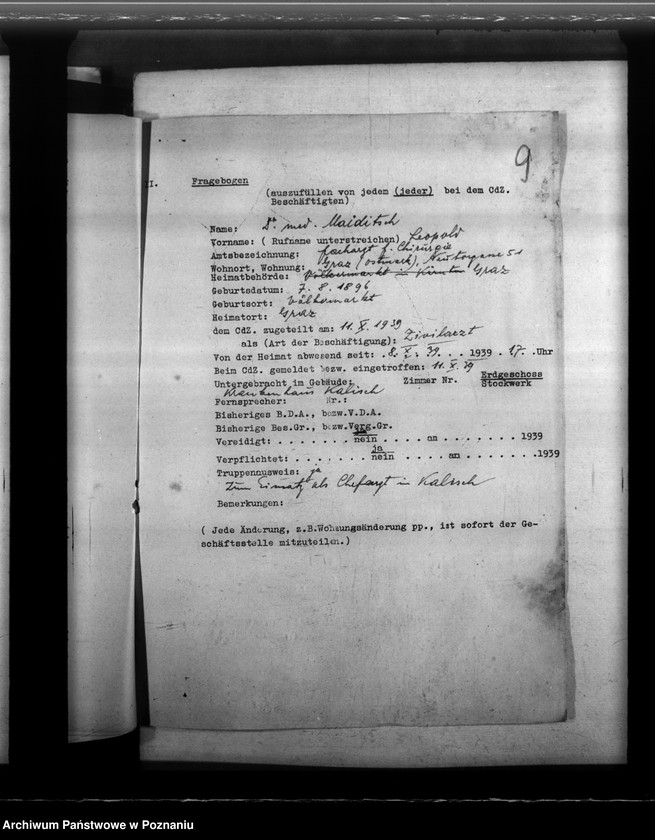 9
II. Fragebogen
(auszufüllen von jedem (jeder) bei dem CdZ.
Beschäftigten)
Name: Dr med. Maiditsch
Vorname: ( Rufname unterstreichen) Leopold
Amtsbezeichnung: Facharzt f. Chirurgie
Wohnort, Wohnung: Graz (Ostmark), 51
Heimatbehörde: Völkermarkt in Kärnten Graz
Geburtsdatum: 7. 8. 1896
Geburtsort: Völkermarkt
Heimatort: Graz
dem CdZ. zugeteilt am: 11. X. 1939
als (Art der Beschäftigung): Zivilarzt
Von der Heimat abwesend seit: .8. X. 39. . . 1939 . 17. .Uhr
Beim CdZ. gemeldet bezw. eingetroffen: 11. X. 39
Untergebracht im Gebäude: Zimmer Nr. Erdgeschoss
Stockwerk
Krankenhaus Kalisch
Fernsprecher: Nr.:
Bisheriges B.D.A., bezw.V.D.A.
Bisherige Bes.Gr., bezw.Verg.Gr.
ja
Vereidigt: . . . . . . . nein . . . . . an . . . . . . . . 1939
ja
Verpflichtet: . . . . . . . nein . . . . . an . . . . . . . .1939
Truppenausweis: ja
zum Einsatz als Chefarzt in Kalisch
Bemerkungen:
( Jede Änderung, z.B.Wohnungsänderung pp., ist sofort der Ge-
schäftsstelle mitzuteilen.)
Archiwum Państwowe w Poznaniu